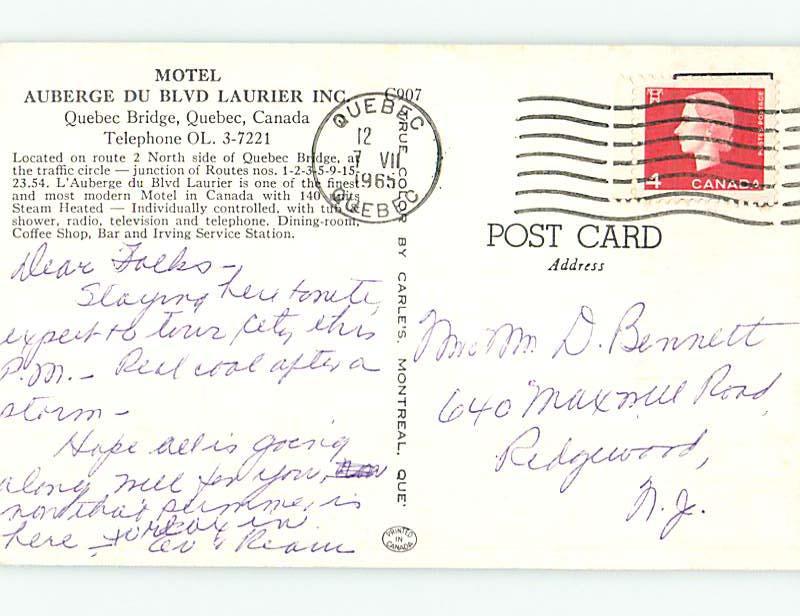 MOTEL
AUBERGE DU BLVD LAURIER INC.
Quebec Bridge, Quebec, Canada
Telephone OL. 3-7221
Located on route 2 North side of Quebec Bridge, at
the traffic circle — junction of Routes nos. 1-2-3-5-9-15-
23.54. L'Auberge du Blvd Laurier is one of the finest
and most modern Motel in Canada with 140 units
Steam Heated — Individually controlled, with tub,
shower, radio, television and telephone. Dining-room,
Coffee Shop, Bar and Irving Service Station.
Dear Folks -
Staying here tonite,
expect to tour city this
P.M. - Real cool after a
storm -
Hope all is going
along well for you,
now that summer is
here
C907
TRUE COLOR BY CARLE'S, MONTREAL, QUE'
PRINTED IN CANADA
QUEBEC
12
7 VII
1965
QUEBEC
4 CANADA
POSTES POSTAGE
POST CARD
Address
D. Bennett
640 Maxwell Road
Ridgewood,
N.J.